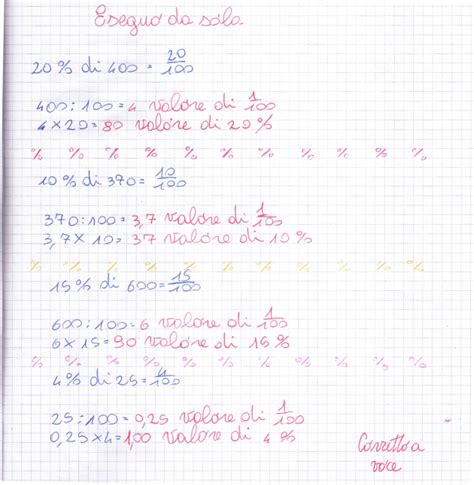 Eseguo da sola.
20% di 400 = 20/100
400:100=4 valore di 1/100
4×20=80 valore di 20%
% % % % % % % % % % %
10% di 370= 10/100
370:100=3,7 valore di 1/100
3,7×10=37 valore di 10%
% % % % % % % % % % %
15% di 600= 15/100
600:100=6 valore di 1/100
6×15=90 valore di 15%
% % % % % % % % % % %
4% di 25= 4/100
25:100=0,25 valore di 1/100
0,25×4=1,00 valore di 4%
Corretto a
voce